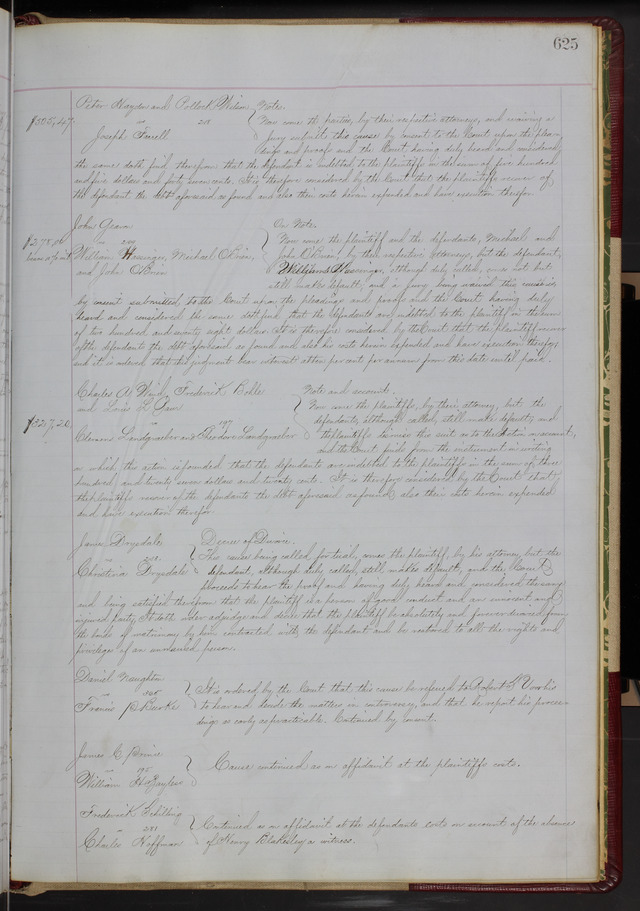 625
Peter Hayden and Pollock Wilson } Note.
$505,47. vs 202 Now come the parties, by their respective attorneys, and waiving a
Joseph Ferrell jury submit this cause by consent to the Court upon the plea-
dings and proofs and the Court having duly heard and considered
the same doth find therefrom that the defendant is indebted to the plaintiffs in the sum of five hundred
and five dollars and forty seven cents. It is therefore considered by the Court that the plaintiffs recover of
the defendant the debt aforesaid as found and also their costs herein expended and have execution therefor
John On Note.
$278,00 vs Now come the plaintiff and the defendants, Michael and
William Hessinger, Michael O'Brien, } John O'Brien, by their respective attorneys, but the defendant,
and John O'Brien William Hessinger, although duly called, comes not but
still makes default, and a jury being waived this cause is
by consent submitted to the Court upon the pleadings and proofs and the Court having duly
heard and considered the same doth find that the defendants are indebted to the plaintiff in the sum
of two hundred and seventy eight dollars. It is therefore considered by the Court that the plaintiff recover
of the defendants the debt aforesaid as found and also his costs herein expended and have execution therefor,
and it is ordered that this judgment bear interest at ten per cent per annum from this date until paid.
Charles A. Frederick Bolle } Note and account.
and Louis L. Now come the plaintiffs, by their attorney, but the
$327,20. vs 197 defendants, although called, still make default, and
Clemens Landgraeber and Theodore Landgraeber the plaintiffs dismiss this suit as to the action on account,
and the Court finds from the instrument in writing
on which the action is founded that the defendants are indebted to the plaintiffs in the sum of three
hundred and twenty seven dollars and twenty cents. It is therefore considered by the Court that
the plaintiffs recover of the defendants the debt aforesaid as found also their costs herein expended
and have execution therefor.
James Drysdale Decree of Divorce.
vs } This cause being called for trial, comes the plaintiff, by his attorney, but the
Christina Drysdale defendant, although duly called, still makes default, and the Court
proceeds to hear the proof and having duly heard and considered the same
and being satisfied therefrom that the plaintiff is a person of good conduct and an innocent and
injured party, it doth order adjudge and decree that the plaintiff be absolutely and forever divorced from
the bonds of matrimony by him contracted with the defendant and be restored to all the rights and
privileges of an unmarried person.
Daniel Naughton
vs } It is ordered by the Court that this cause be referred to Robert S. Voorhis
Francis P. Burke to hear and decide the matters in controversy, and that he report his procee-
dings as early as practicable. Continued by consent.
James C.
vs } Cause continued as on affidavit at the plaintiff's costs.
William H. Gaylers
Frederick Schilling
vs 251 } Continued as on affidavit at the defendants costs on account of the absence
Charles Hoffman of Henry Blakesley a witness.